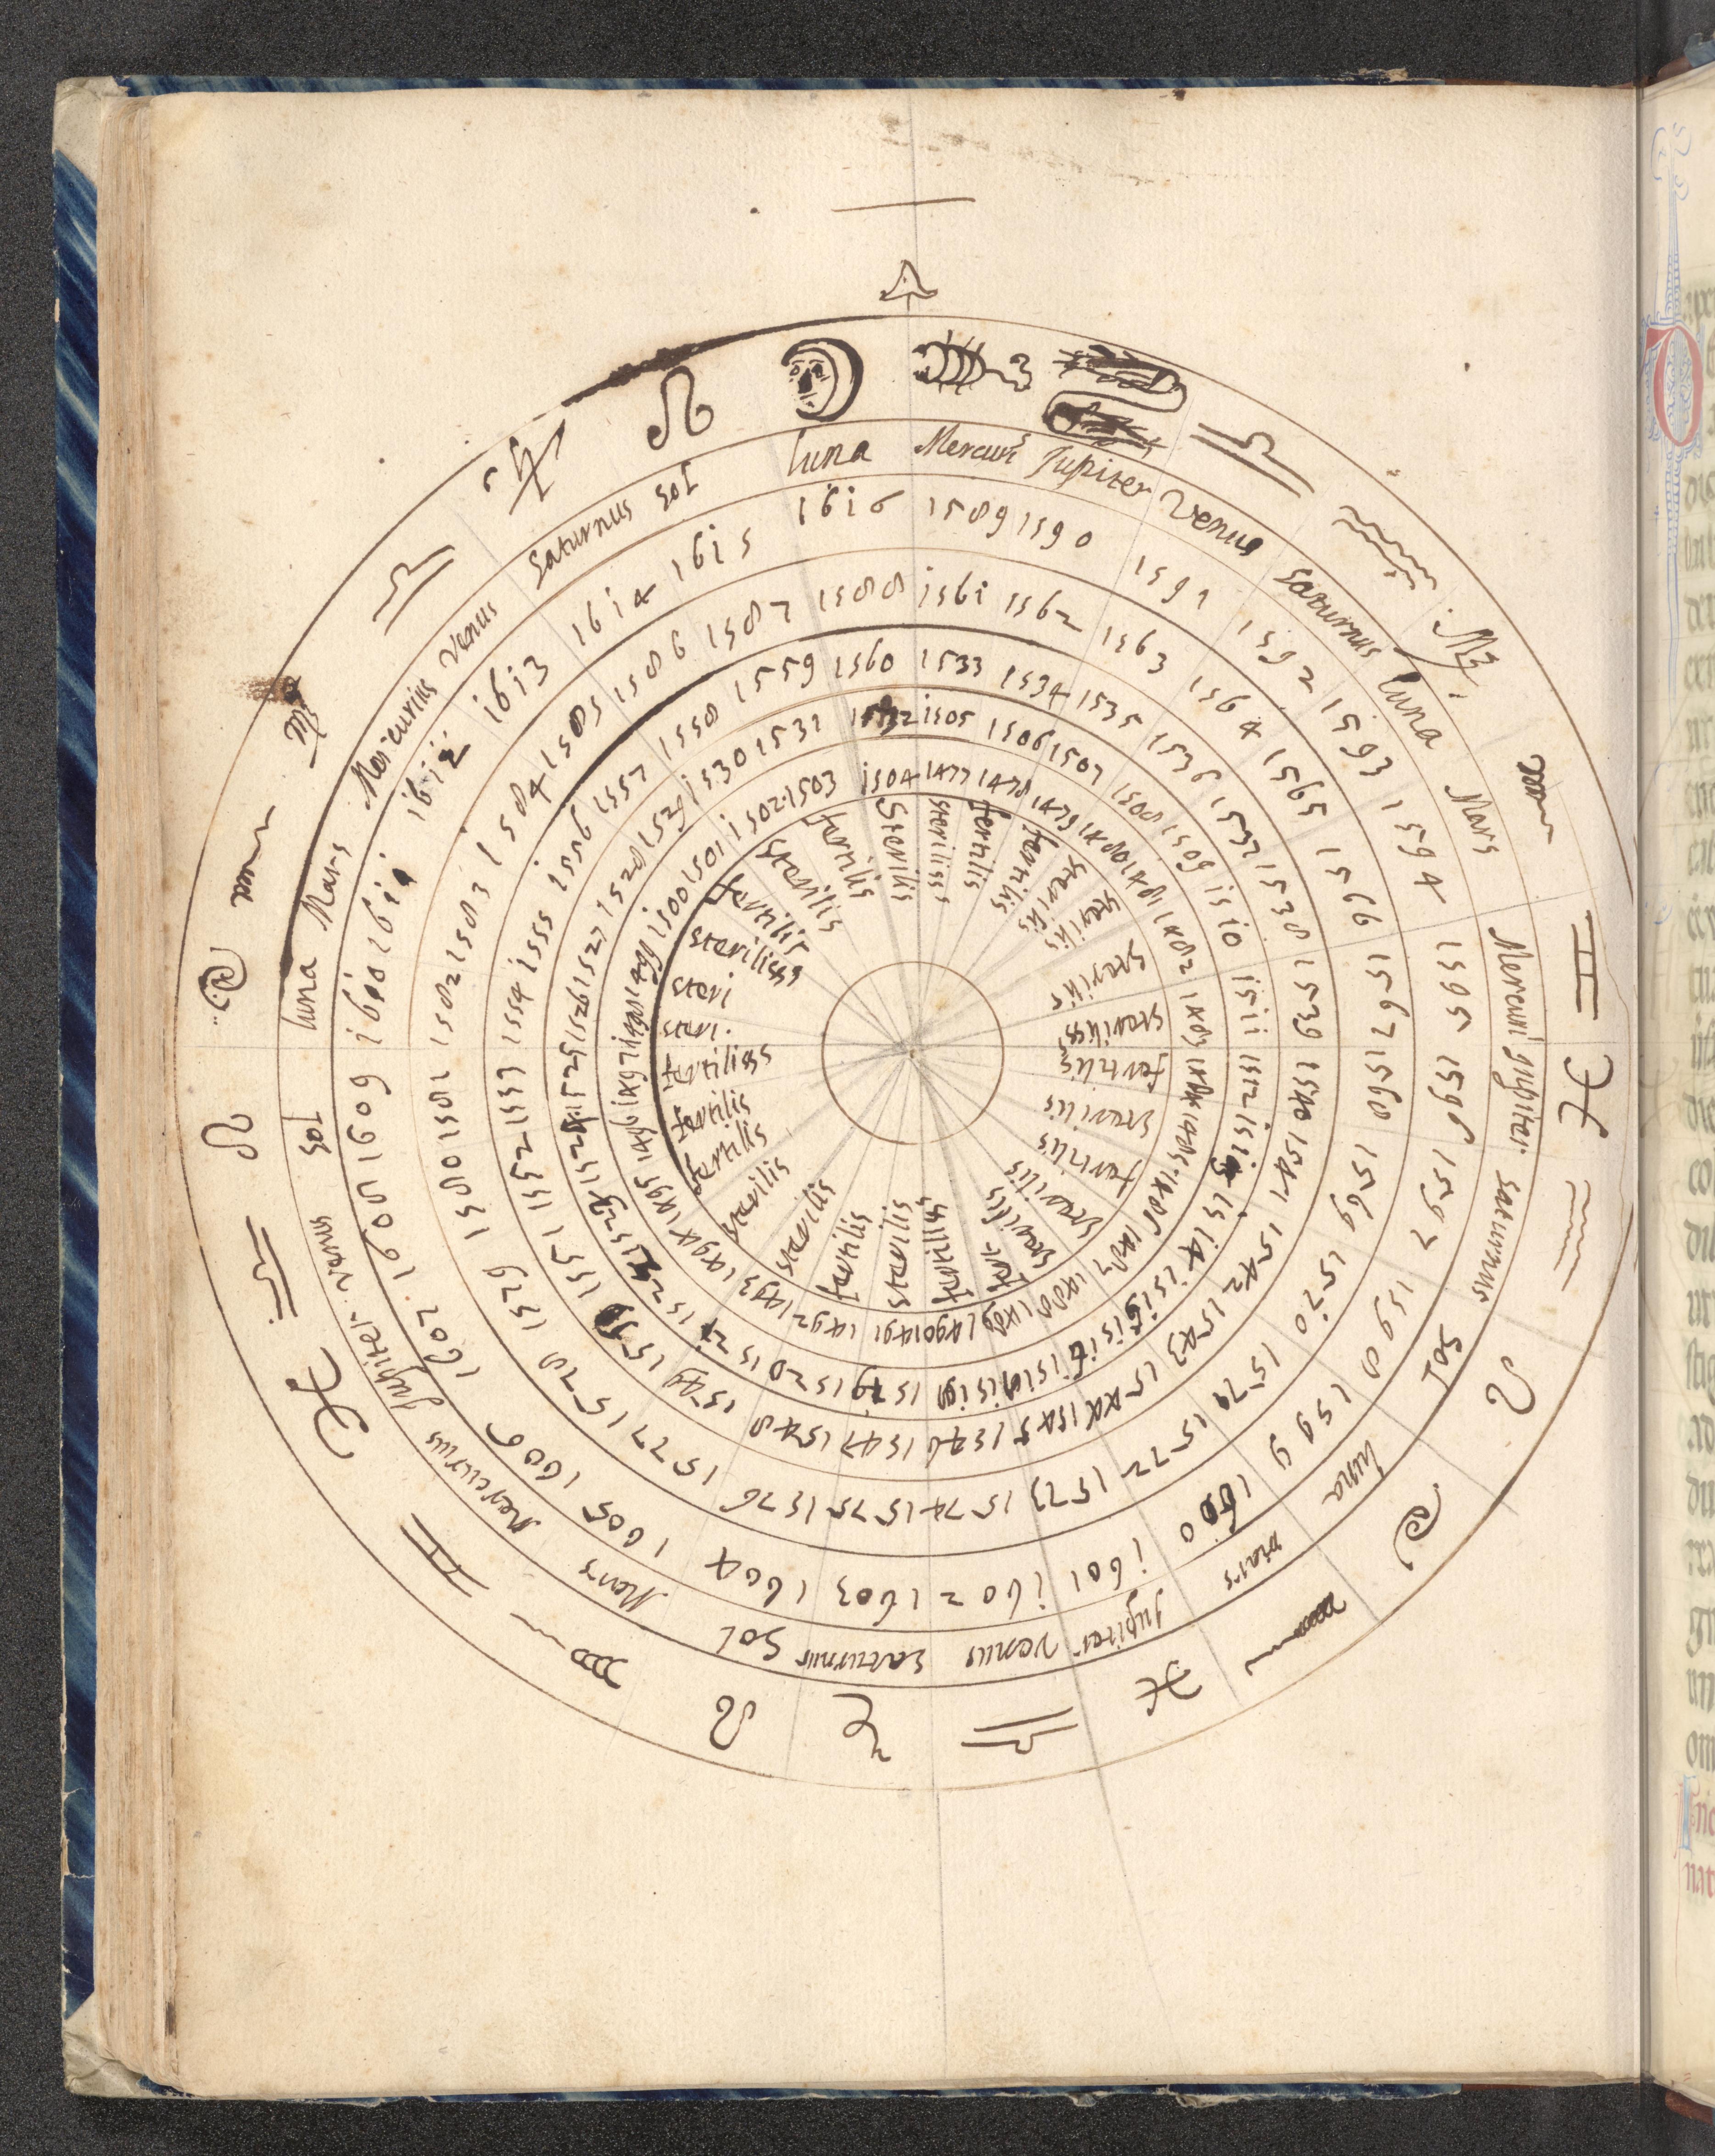 Mercuri9 Jupiter Venus saturnus luna Mars Mercuri Jupiter saturnus Sol luna mars Jupiter venus saturnus Sol Mars Mercurius Jupiter venus Sol luna Mars Mercurius Venus Saturnus Sol luna
1589 1590 1591 1592 1593 1594 1595 1596 1597 1598 1599 1600 1601 1602 1603 1604 1605 1606 1607 1608 1609 1610 1611 1612 1613 1614 1615 1616
1561 1562 1563 1564 1565 1566 1567 1568 1569 1570 1571 1572 1573 1574 1575 1576 1577 1578 1579 1580 1581 1582 1583 1584 1585 1586 1587 1588
1533 1534 1535 1536 1537 1538 1539 1540 1541 1542 1543 1544 1545 1546 1547 1548 1549 1550 1551 1552 1553 1554 1555 1556 1557 1558 1559 1560
1505 1506 1507 1508 1509 1510 1511 1512 1513 1514 1515 1516 1517 1518 1519 1520 1521 1522 1523 1524 1525 1526 1527 1528 1529 1530 1531 1532
1477 1478 1479 1480 1481 1482 1483 1484 1485 1486 1487 1488 1489 1490 1491 1492 1493 1494 1495 1496 1497 1498 1499 1500 1501 1502 1503 1504
steriliss fertilis fertilis sterilis sterilis sterilis steriliss fertilis sterilis fertilis sterilis sterilis fert fertiliss sterilis fertilis sterilis sterilis fertilis fertilis fertiliss steri steri steriliss fertilis sterilis fertilis sterilis